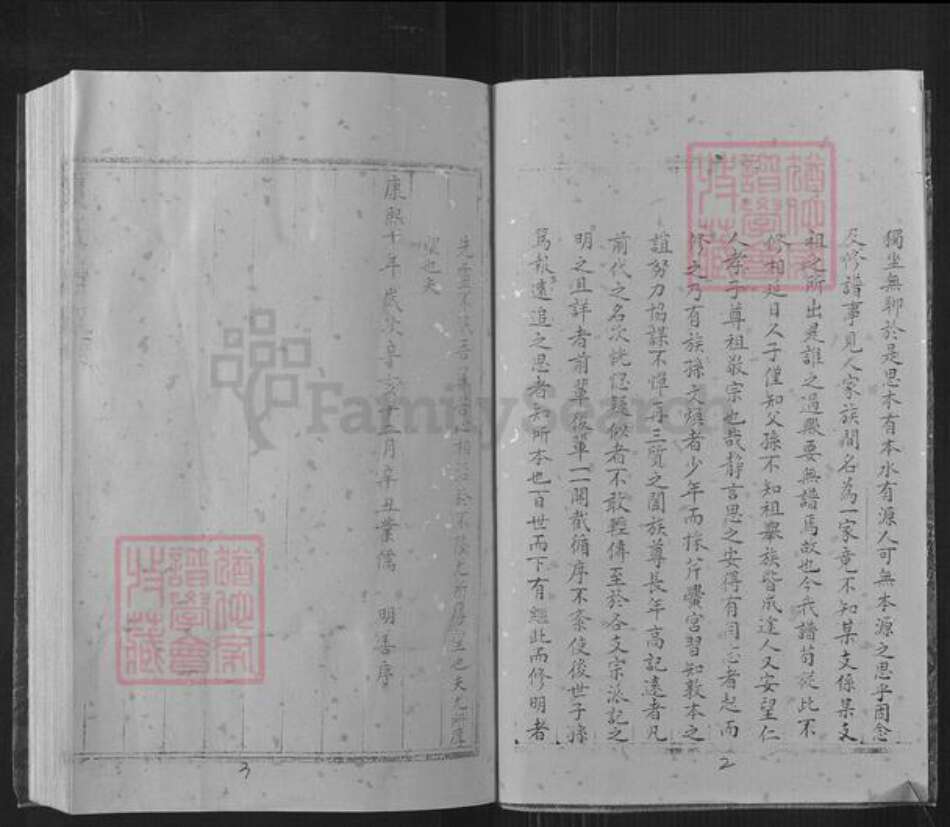 獨坐無聊於是思木有本水有源人可無本源之思乎因念
及修譜事見人家族間名為一家竟不知某支係某支
祖之所出是誰之過與要無譜焉故也今我譜苟從此不
修相延日人子僅知父孫不知祖舉族皆成途人又安望仁
人孝子尊祖敬宗也哉靜言思之安得有同志者起而
修之乃有族孫文 者少年而採芹黌宮習知敦本之
誼努力協謀不憚再三質之闔族尊長年高記遠者凡
前代之名次恍惚疑似者不敢輕傳至於各支宗派記之
明之且詳者前輩後輩一一開載循序不紊使後世子孫
篤報遠追之思者知所本也百世而下有繼此而修明者
2
先靈不 吾 相 於不 之所厚望也夫
望也夫
康熙十年歲次辛亥十二月辛丑業儒 明善序
3
猶他家譜學會特藏
猶他家譜學會特藏
FamilySearch